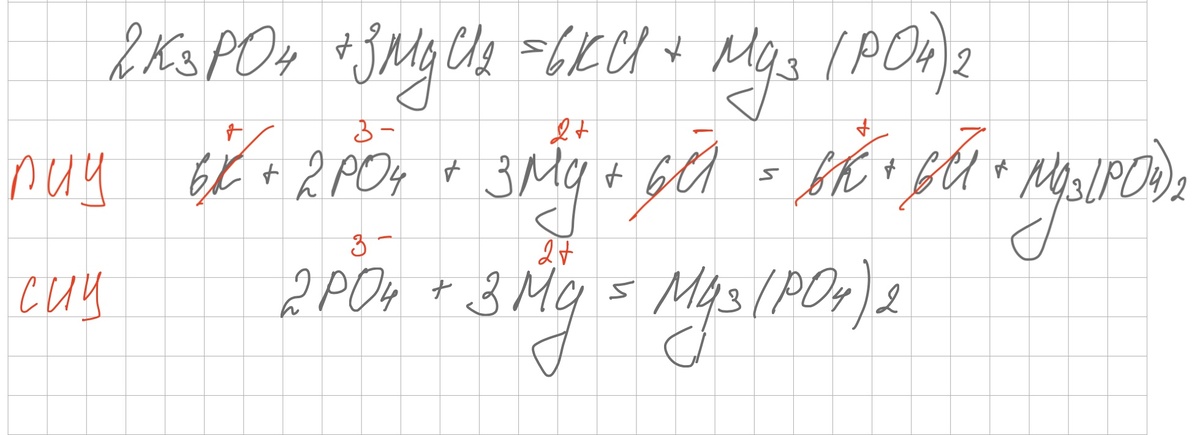 2K₃PO₄ + 3MgCl₂ = 6KCl + Mg₃(PO₄)₂
ПИУ 6K⁺ + 2PO₄³⁻ + 3Mg²⁺ + 6Cl⁻ = 6K⁺ + 6Cl⁻ + Mg₃(PO₄)₂
СИУ 2PO₄³⁻ + 3Mg²⁺ = Mg₃(PO₄)₂